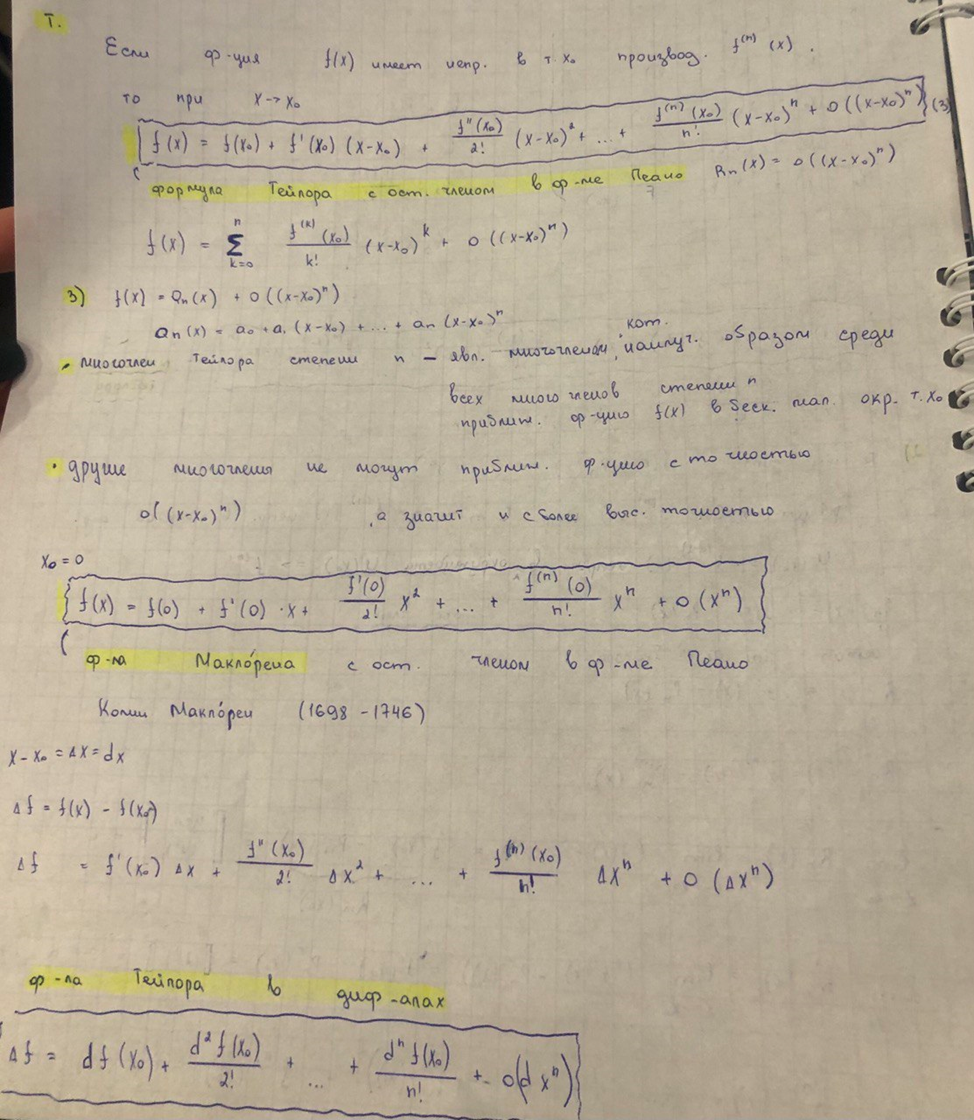 Т.
Если ф-ция f(x) имеет непр. в т. x₀ производ. f⁽ⁿ⁾(x).
то при x→x₀
f(x) = f(x₀) + f'(x₀)(x-x₀) + f''(x₀)/2! (x-x₀)² + ... + f⁽ⁿ⁾(x₀)/n! (x-x₀)ⁿ + o((x-x₀)ⁿ) (3)
формула Тейлора с ост. членом в ф-ме Пеано Rₙ(x) = o((x-x₀)ⁿ)
f(x) = Σ_{k=0}^{n} f⁽ᵏ⁾(x₀)/k! (x-x₀)ᵏ + o((x-x₀)ⁿ)
3) f(x) = Qₙ(x) + o((x-x₀)ⁿ)
Qₙ(x) = a₀ + a₁(x-x₀) + ... + aₙ(x-x₀)ⁿ
• многочлен Тейлора степени n – явл. многочленом, кот. наилуч. образом среди
всех многочленов степени n
приближ. ф-цию f(x) в беск. мал. окр. т. x₀
• другие многочлены не могут приближ. ф-цию с точностью
o((x-x₀)ⁿ), а значит и с более выс. точностью
x₀ = 0
f(x) = f(0) + f'(0)·x + f'(0)/2! x² + ... + f⁽ⁿ⁾(0)/n! xⁿ + o(xⁿ)
ф-ла Макло́рена с ост. членом в ф-ме Пеано
Колин Макло́рен (1698 - 1746)
x-x₀ = Δx = dx
Δf = f(x) - f(x₀)
Δf = f'(x₀) Δx + f''(x₀)/2! Δx² + ... + f⁽ⁿ⁾(x₀)/n! Δxⁿ + o(Δxⁿ)
ф-ла Тейлора в диф-алах
Δf = df(x₀) + d²f(x₀)/2! + ... + dⁿf(x₀)/n! + o(dxⁿ)